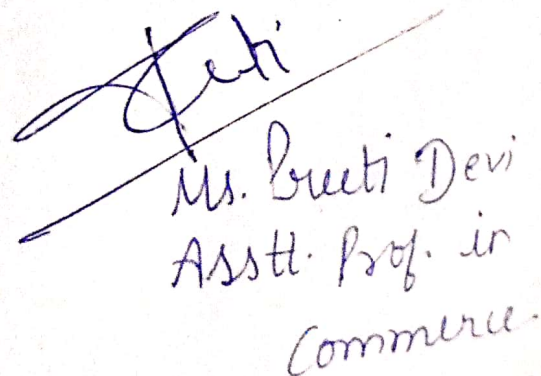 Preeti
Ms. Preeti Devi
Asstt. Prof. in
Commerce.